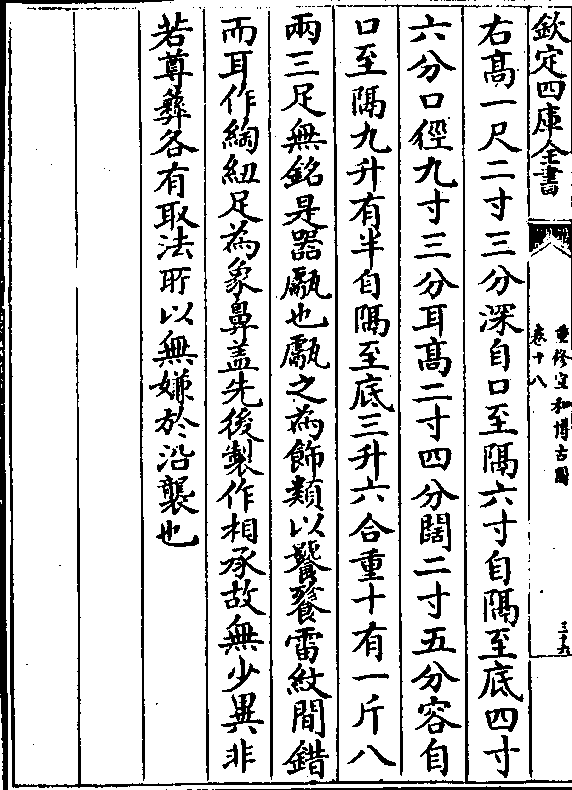 欽定四庫全書
重修宣和博古圖
卷十八
三十九
右髙一尺二寸三分深自口至隔六寸自隔至底四寸
六分口徑九寸三分耳髙二寸四分闊二寸五分容自
口至隔九升有半自隔至底三升六合重十有一斤八
兩三足無銘是器甗也甗之為飾類以饕餮雷紋間錯
而耳作綯紐足為象鼻盖先後製作相承故無少異非
若尊彝各有取法所以無嫌於沿襲也